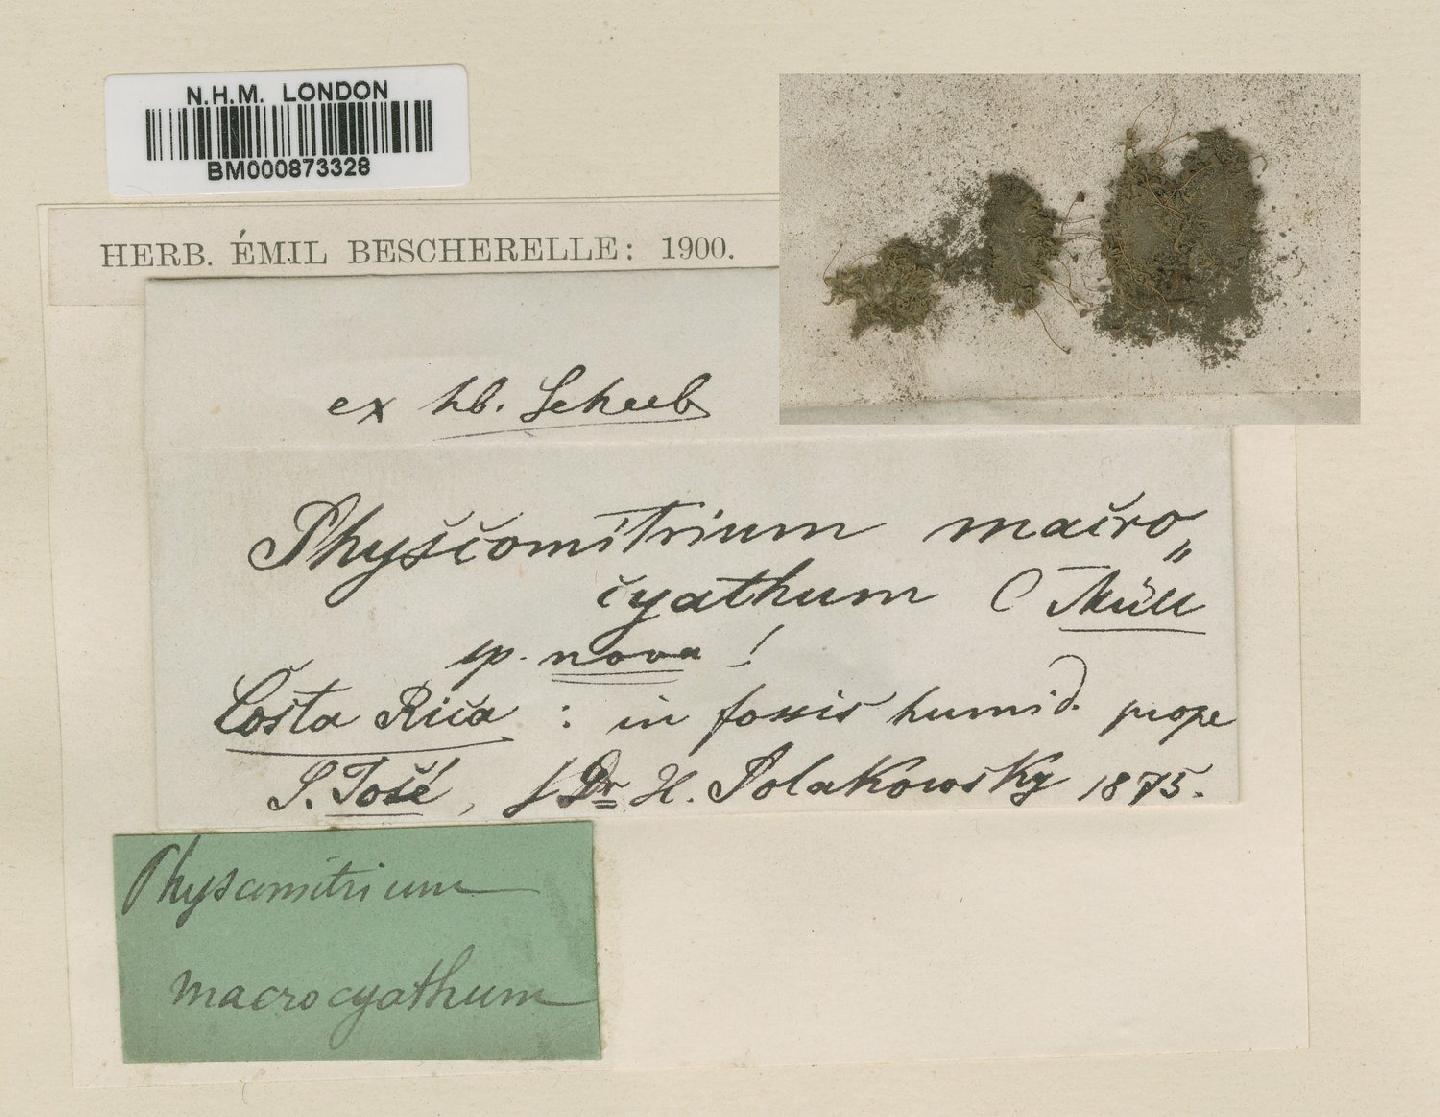 N.H.M. LONDON
BM000873328
HERB. ÉMIL BESCHERELLE: 1900.
ex hb. Geheeb
Physcomitrium macro„
cyathum C Müll
sp. nova !
Costa Rica : in fossis humid. prope
S. José, l Dr H. Polakowsky 1875.
Physcomitrium
macrocyathum